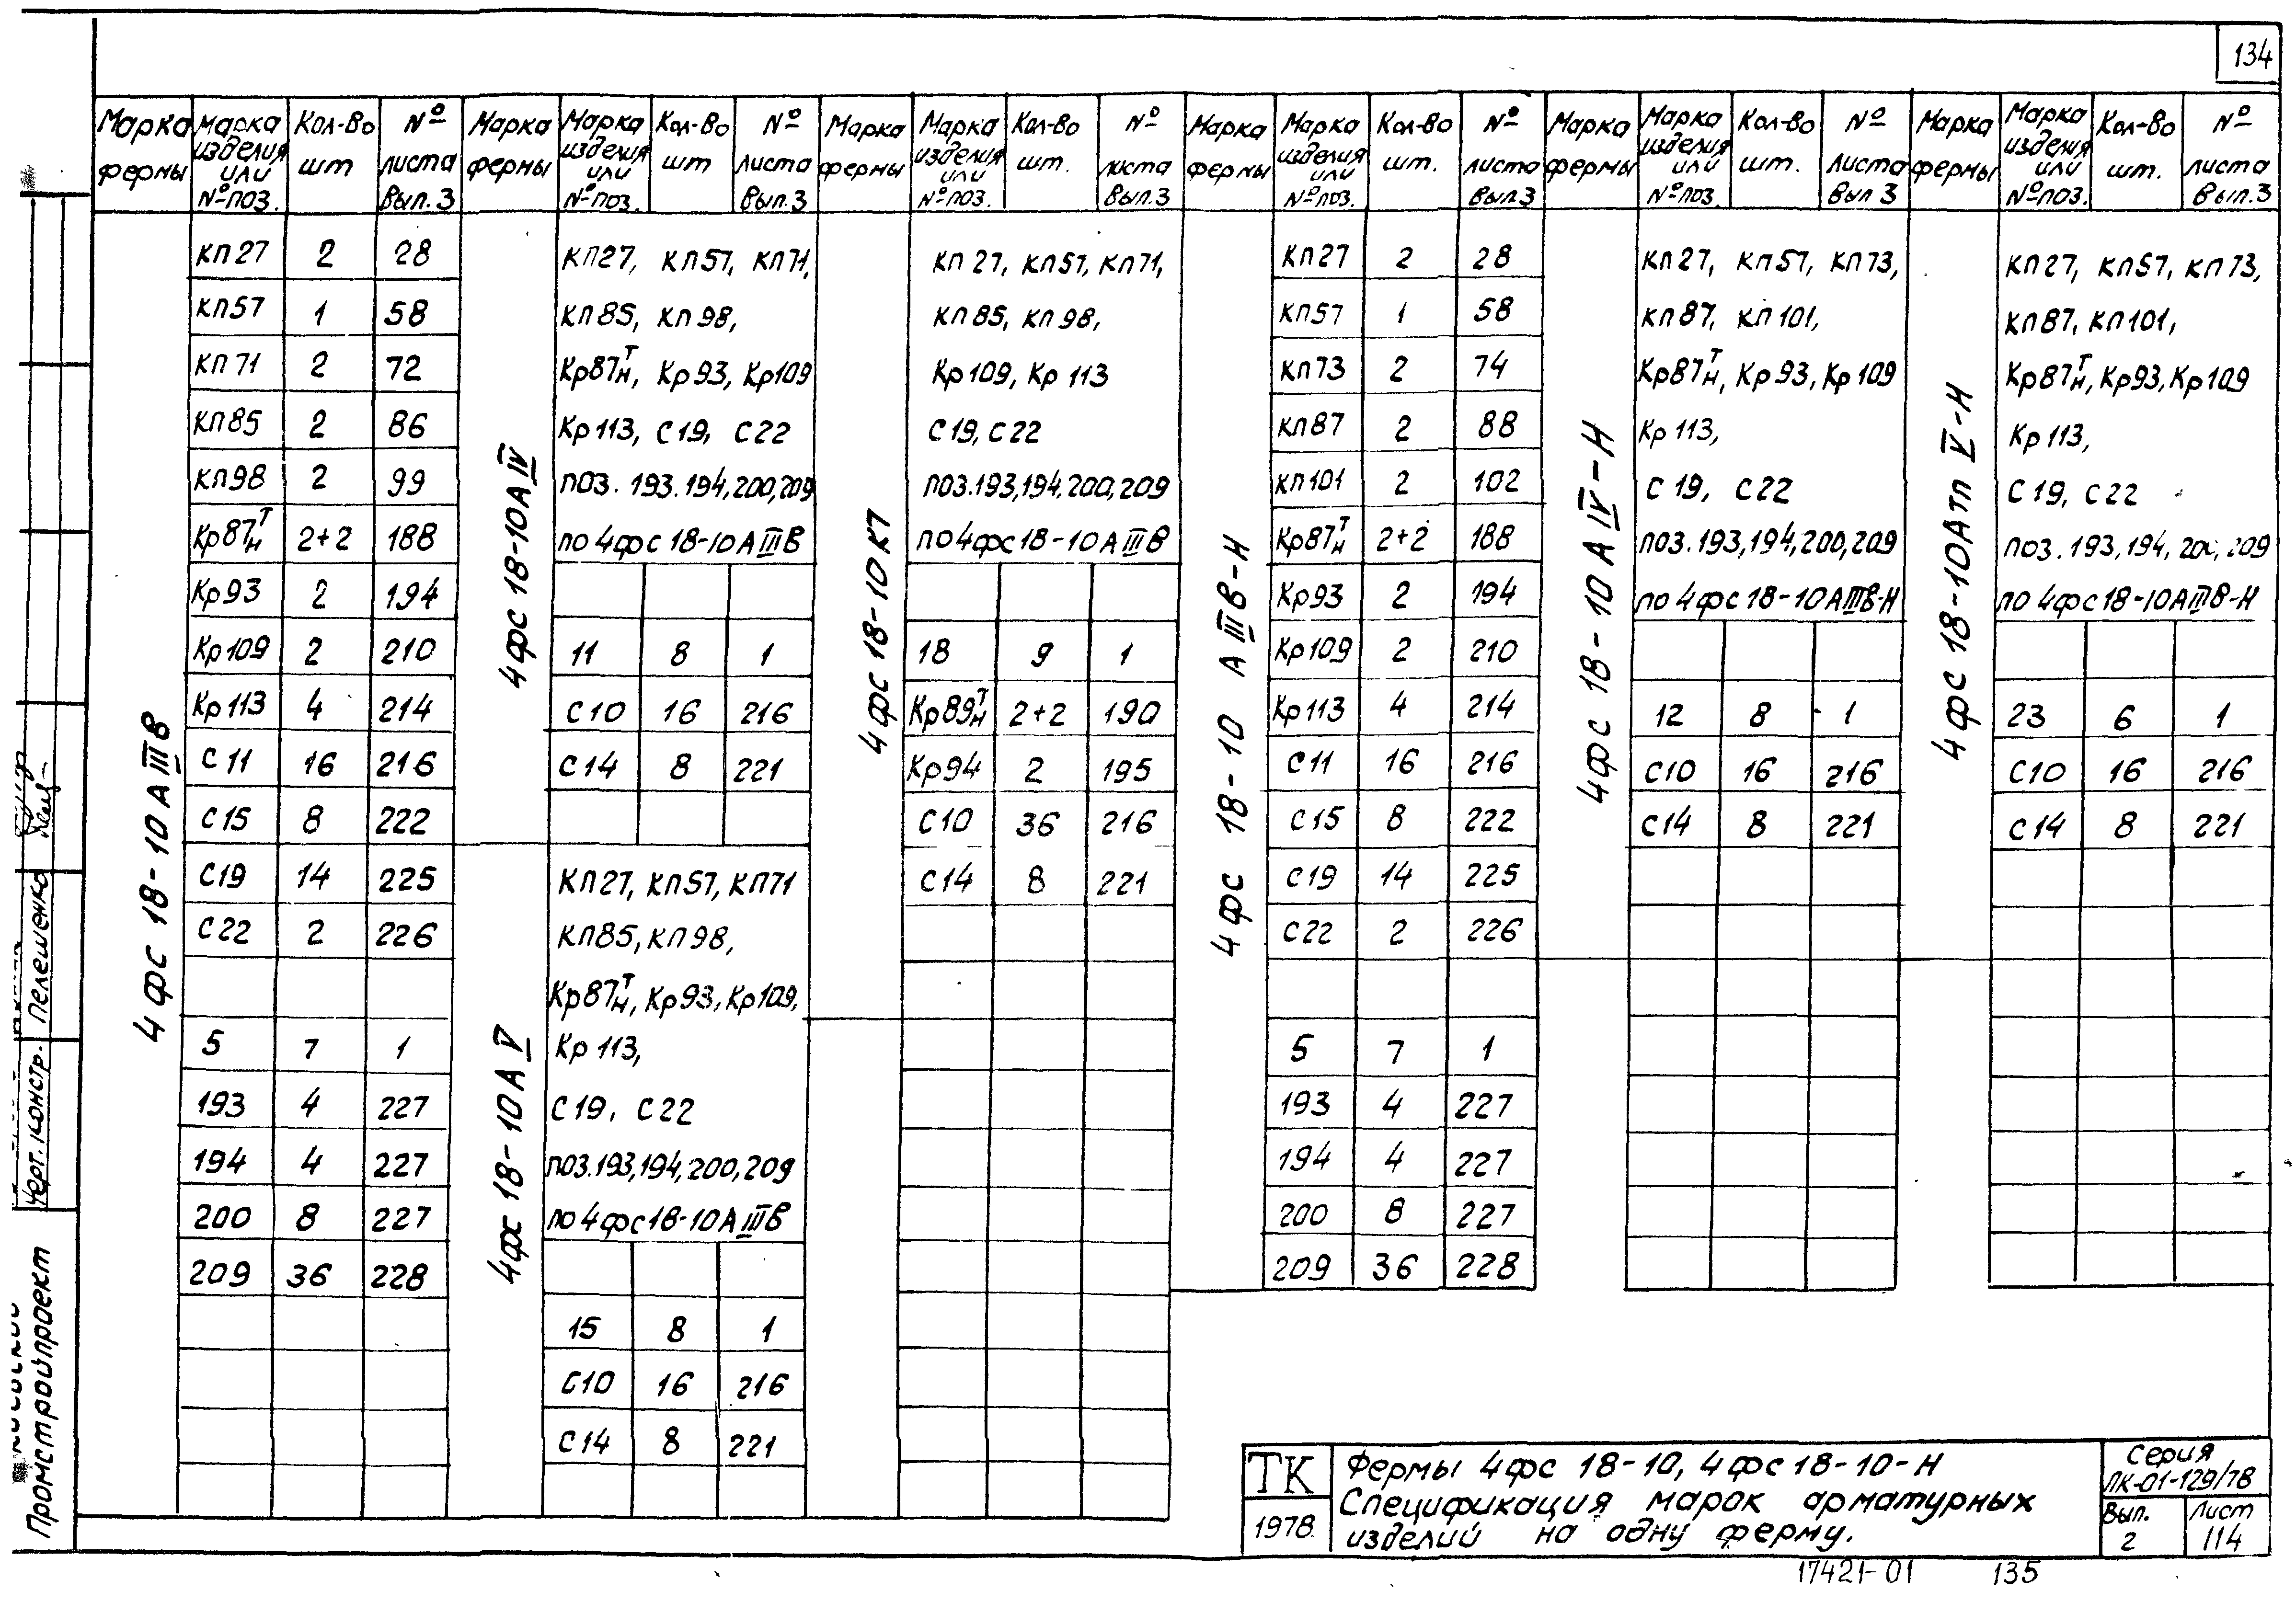 134
Марка фермы | Марка изделия или № поз. | Кол-во шт | № листа Вып.3
4фс 18-10АIIIВ
КП27 2 28
КП57 1 58
КП71 2 72
КП85 2 86
КП98 2 99
Кр87тн 2+2 188
Кр93 2 194
Кр109 2 210
Кр113 4 214
С11 16 216
С15 8 222
С19 14 225
С22 2 226
5 7 1
193 4 227
194 4 227
200 8 227
209 36 228
Марка фермы | Марка изделия или № поз. | Кол-во шт | № листа Вып.3
4фс 18-10АIV
КП27, КП57, КП71,
КП85, КП98,
Кр87тн, Кр93, Кр109
Кр113, С19, С22
поз. 193.194,200,209
по 4фс 18-10АIIIВ
11 8 1
С10 16 216
С14 8 221
4фс 18-10АV
КП27, КП57, КП71
КП85, КП98,
Кр87тн, Кр93, Кр109,
Кр113,
С19, С22
поз.193,194,200,209
по 4фс18-10АIIIВ
15 8 1
С10 16 216
С14 8 221
Марка фермы | Марка изделия или № поз. | Кол-во шт. | № листа Вып.3
4фс 18-10К7
КП27, КП57, КП71,
КП85, КП98,
Кр109, Кр113
С19, С22
поз.193,194,200,209
по 4фс18-10АIIIВ
18 9 1
Кр89тн 2+2 190
Кр94 2 195
С10 36 216
С14 8 221
Марка фермы | Марка изделия или № поз. | Кол-во шт. | № листа Вып.3
4фс 18-10 АIIIВ-Н
КП27 2 28
КП57 1 58
КП73 2 74
КП87 2 88
КП101 2 102
Кр87тн 2+2 188
Кр93 2 194
Кр109 2 210
Кр113 4 214
С11 16 216
С15 8 222
С19 14 225
С22 2 226
5 7 1
193 4 227
194 4 227
200 8 227
209 36 228
Марка фермы | Марка изделия или № поз. | Кол-во шт. | № листа Вып 3
4фс 18-10АIV-Н
КП27, КП57, КП73,
КП87, КП101,
Кр87тн, Кр93, Кр109
Кр113,
С19, С22
поз.193,194,200,209
по 4фс18-10АIIIВ-Н
12 8 1
С10 16 216
С14 8 221
Марка фермы | Марка изделия или № поз. | Кол-во шт. | № листа Вып.3
4фс 18-10Атп V-Н
КП27, КП57, КП73,
КП87, КП101,
Кр87тн, Кр93, Кр109
Кр113,
С19, С22
поз. 193,194,200,209
по 4фс18-10АIIIВ-Н
23 6 1
С10 16 216
С14 8 221
Черт. констр. Пелешенко
Промстройпроект
ТК
1978.
Фермы 4фс 18-10, 4фс18-10-Н
Спецификация марок арматурных
изделий на одну ферму.
Серия
ПК-01-129/78
Вып. 2
Лист 114
17421-01 135